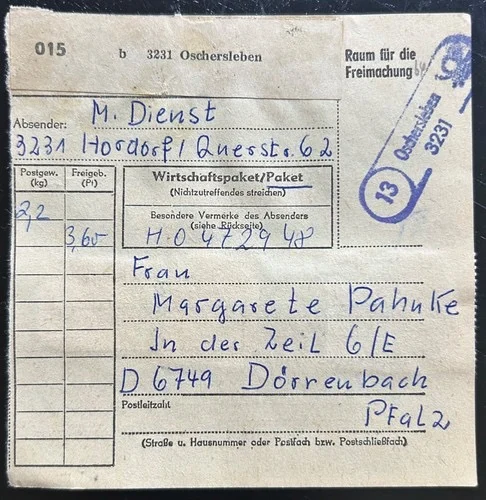 015
b 3231 Oschersleben
Raum für die
Freimachung
Oschersleben
3231
13
Absender: M. Dienst
3231 Hordorf / Querstr. 62
Postgew.
(kg)
Freigeb.
(Pf)
2,2
3,60
Wirtschaftspaket/Paket
(Nichtzutreffendes streichen)
Besondere Vermerke des Absenders
(siehe Rückseite)
H. 0 472948
Frau
Margarete Pahnke
In der Zeil 6/E
D 6749 Dörrenbach
Postleitzahl
Pfalz
(Straße u. Hausnummer oder Postfach bzw. Postschließfach)